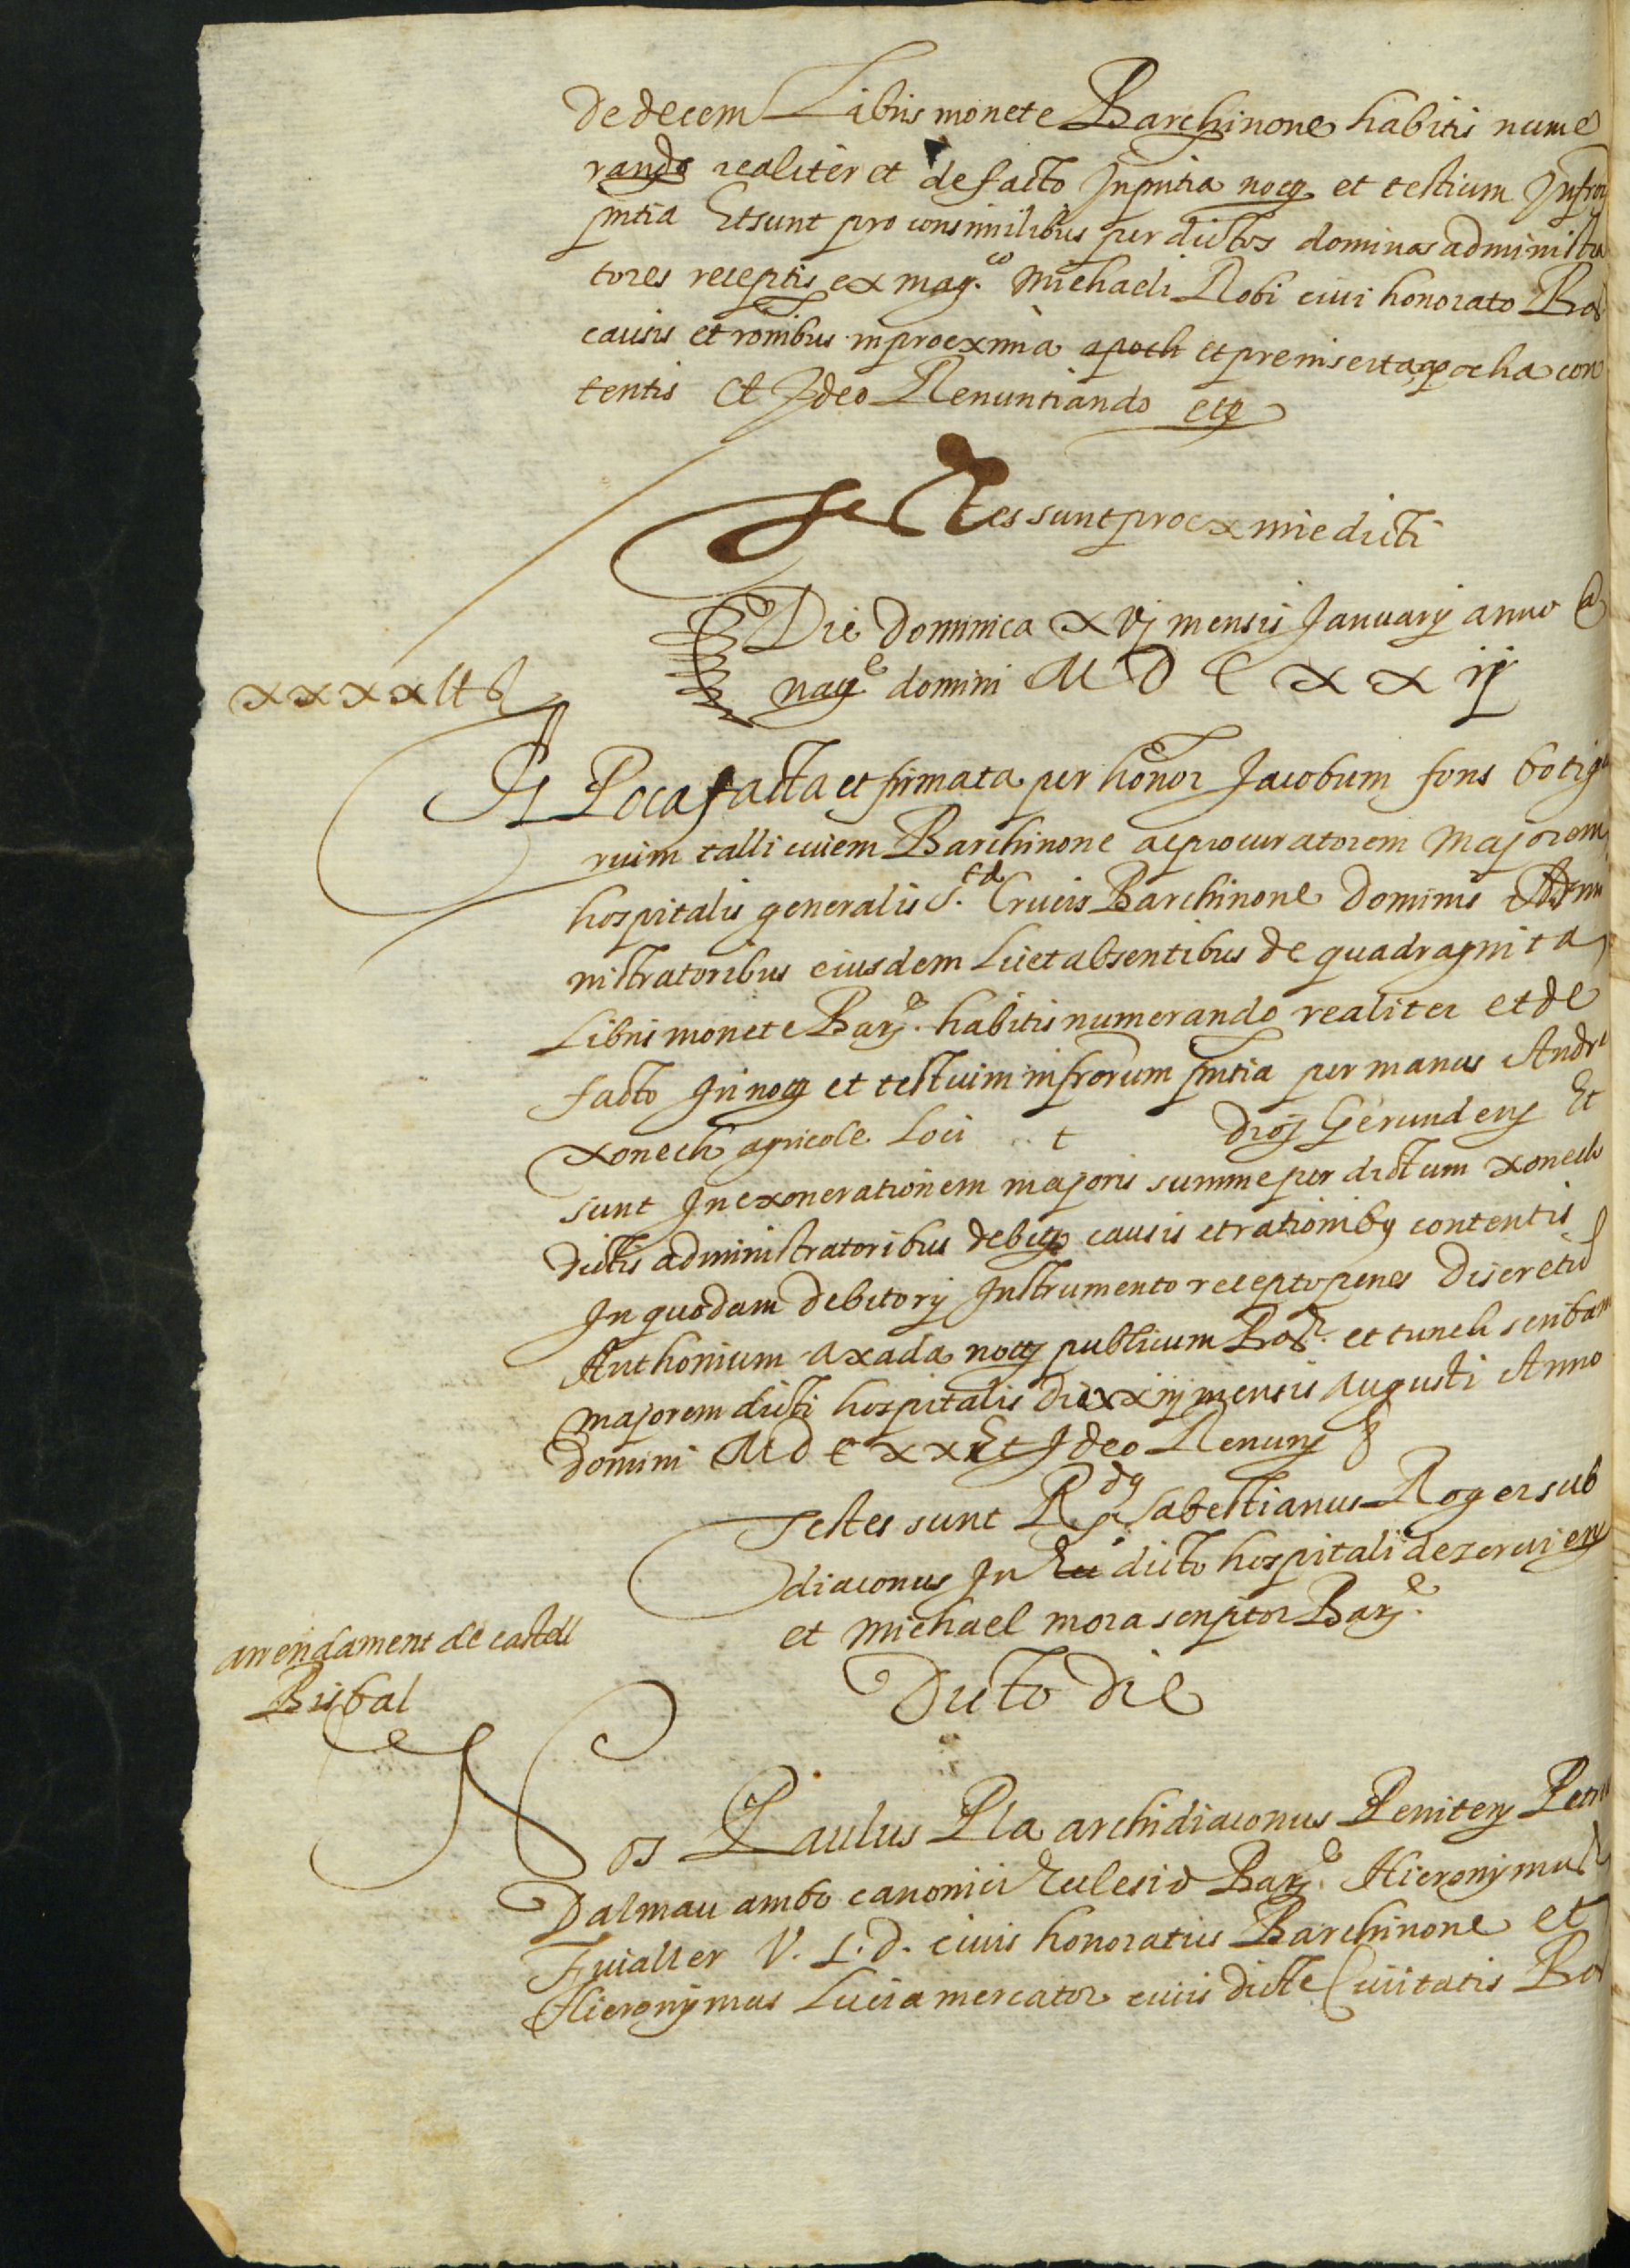 de decem Libris monete Barchinone habitis nume
rando realiter et de facto In pntia noty et testium Infror
pntia Et sunt pro consimilibus per dictos dominos administra
tores receptis ex mag.co Michaeli Robi civi honorato Bar
causis et ronibus in proexima apoch et preinserta apocha con
tentis Et Ideo Renuntiando etc
Testes sunt proexime dicti
Die dominica xvj mensis January anno a
naty domini M D C x x ij
xxxx ll s
A Poca facta et firmata per honor Jacobum fons botiga
rium talli civem Barchinone ac procuratorem majorem
hospitalis generalis S.tæ Crucis Barchinone Dominis Admi
nistratoribus eiusdem Licet absentibus de quadraginta
Libris monete Barne. habitis numerando realiter et de
facto In noty et testium infrorum pntia per manus Andre
xonech agricole Loci t dioj Gerundens Et
sunt In exonerationem majoris summe per dictum xonech
dictis administratoribus debite causis et rationiby contentis
In quodam debitorij Instrumento recepto penes Discretu
Anthonium axada noty publicum Bar. et tunch scribam
majorem dicti hospitalis die xxiij mensis Augusti Anno
domini M D C x x Et Ideo Renuns &
Testes sunt R.dus Sabestianus Roger sub
diaconus In Ecc dicto hospitali deserviens
et Michael mora scriptor Barne.
arrendament de castell
Bisbal
Dicto die
Nos Paulus Pla archidiaconus Penitens Petrus
Dalmau ambo canonici Ecclesie Barne. Hieronymus
Fivaller V. J. D. civis honoratus Barchinone et
Hieronymus Lucia mercator civis dicte Civitatis Bar